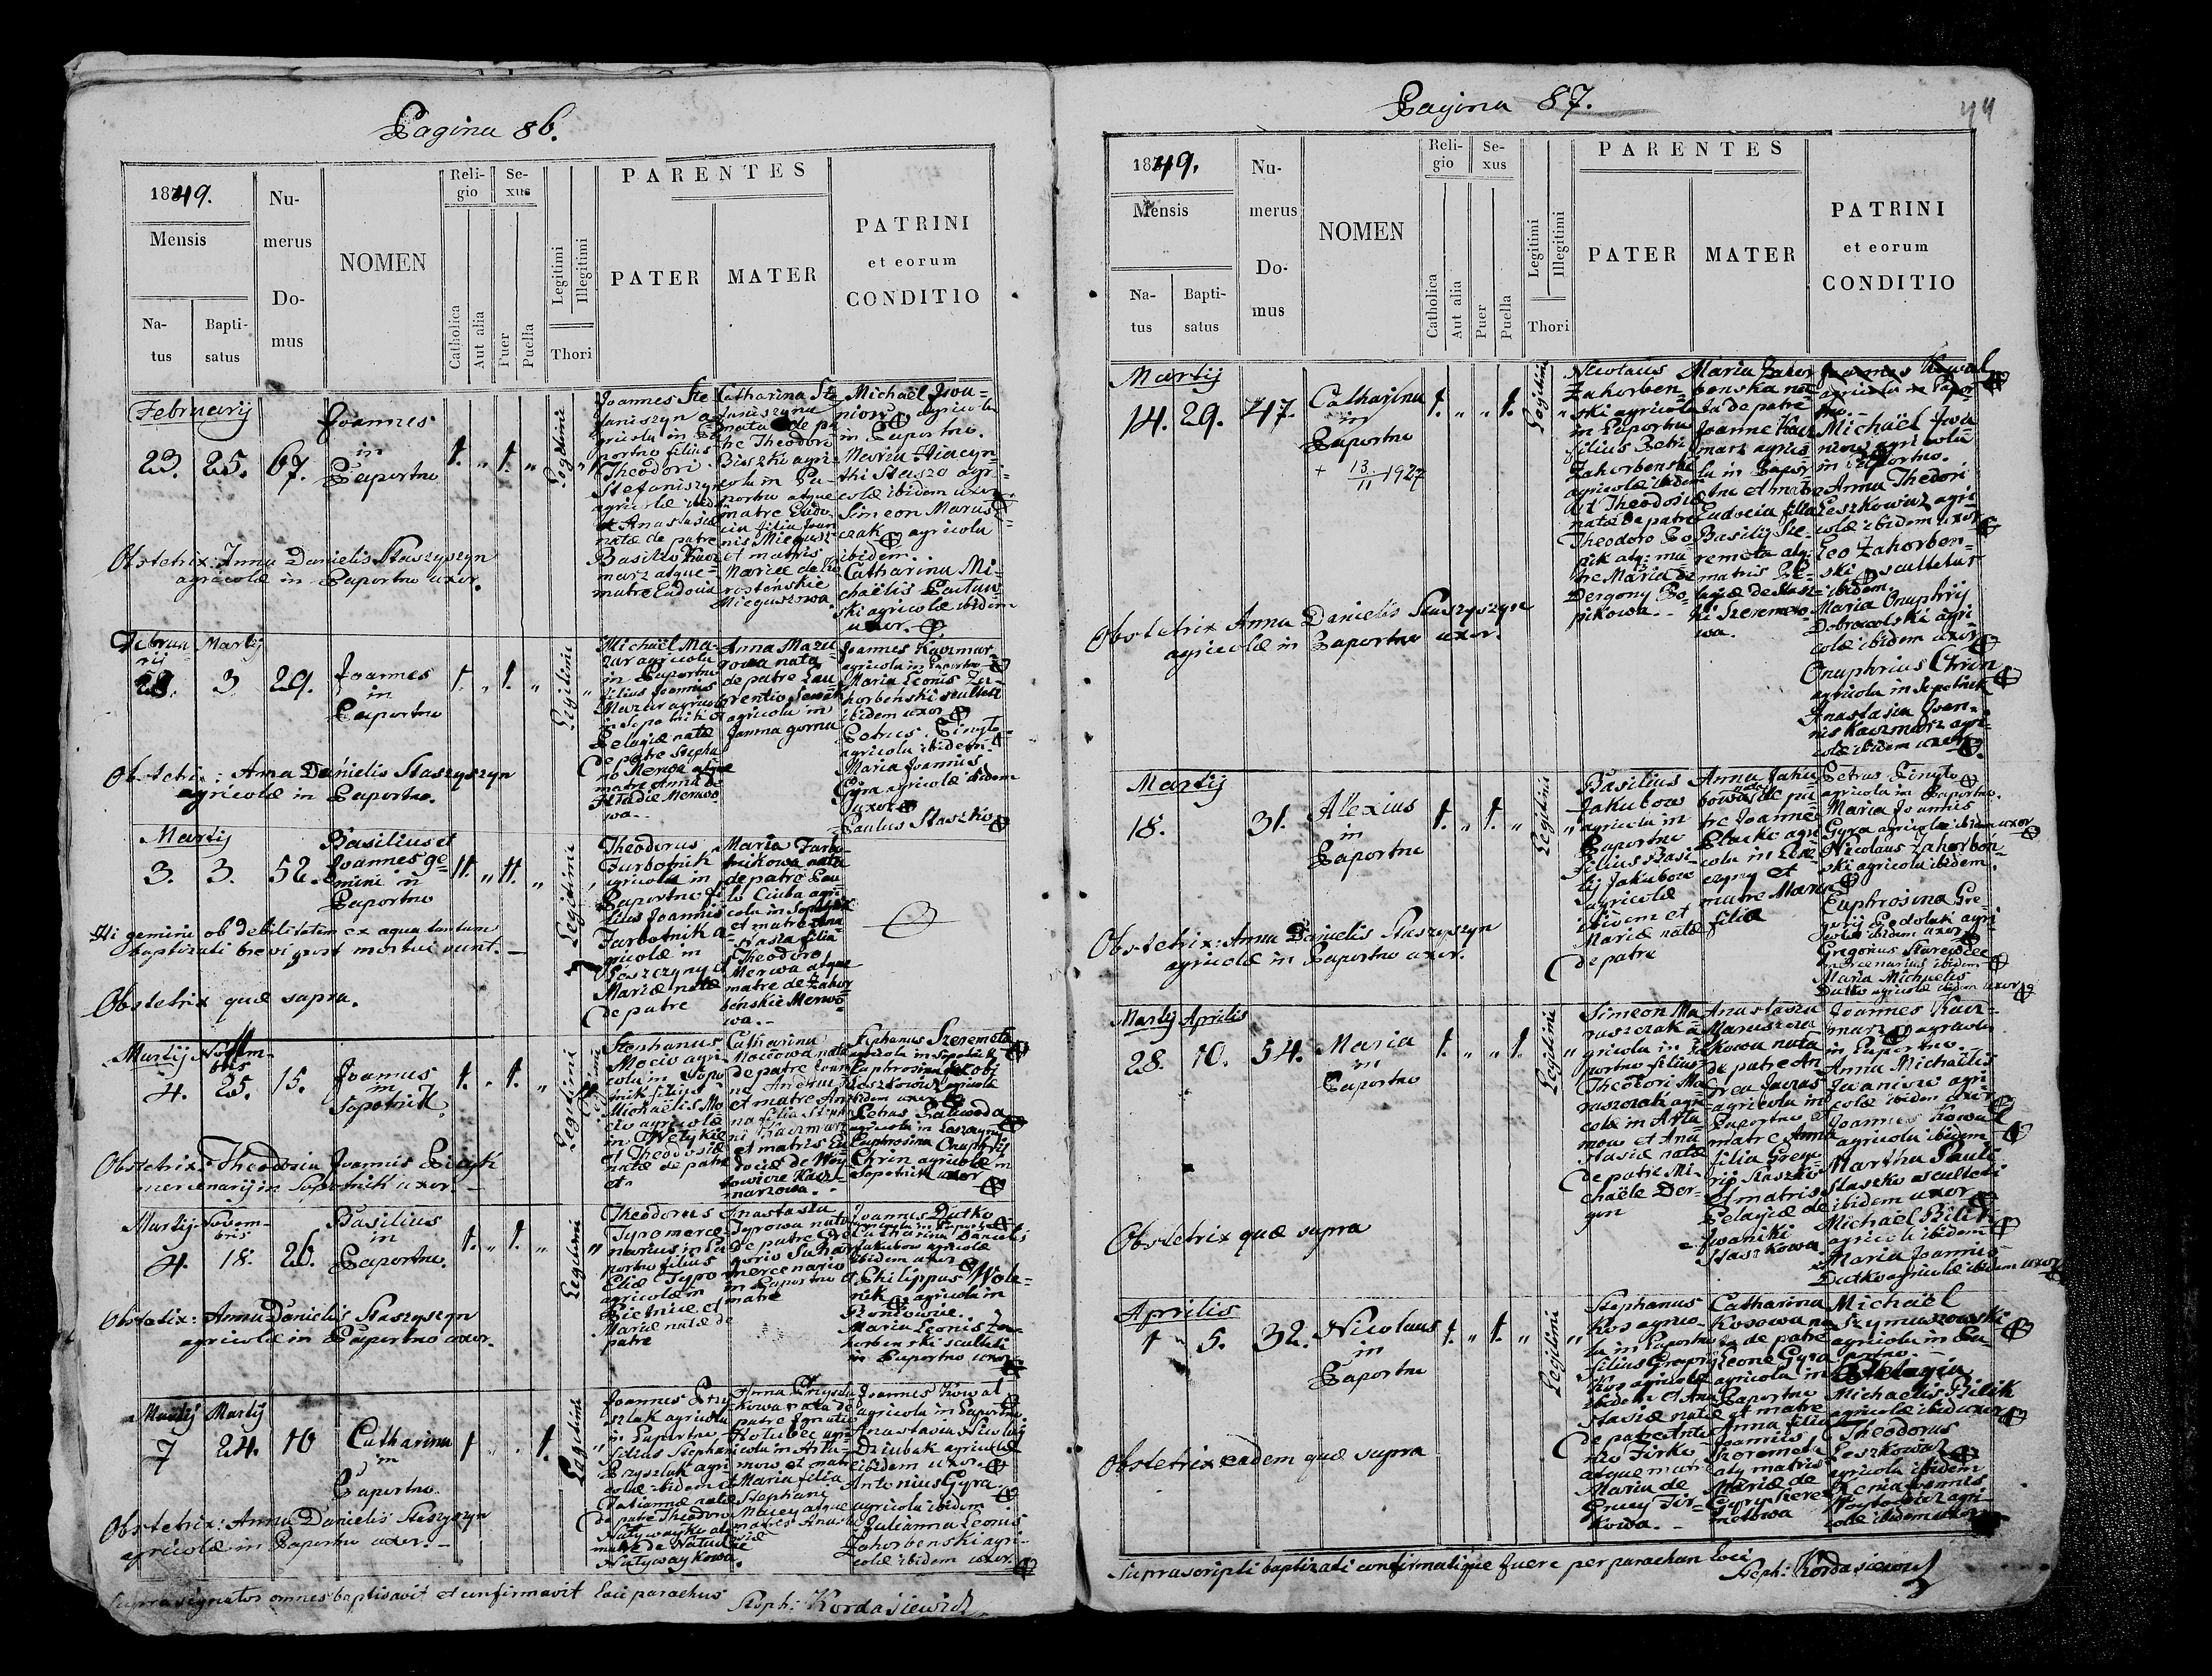 Pagina 86.
1849.
Mensis
Natus
Baptisatus
Numerus Domus
NOMEN
Religio
Catholica
Aut alia
Sexus
Puer
Puella
Legitimi
Illegitimi
Thori
PARENTES
PATER
MATER
PATRINI
et eorum
CONDITIO
Februarij
23. 25. 67.
Joannes
in
Paportno
Legitimi
Joannes Ste-
faniszyn a-
gricola in Pa-
portno filius
Theodori
Stefaniszyn
agricolæ ibid
et Anastasiæ
natæ de patre
Basilio Kacz
marz atque
matre Eudocia
Catharina Ste
faniszyna
nata de pa
tre Theodoro
Biszko agri-
cola in Pa-
portno atque
matre Eudo-
cia filia Joan
nis Miegusz
et matris
Mariæ de Ko
rosteńskie
Mieguszowa
Michaël Iwa-
niow agricola
in Paportno.
Maria Hiacyn-
thi Staszo agri-
colæ ibidem uxor
Simeon Marusz-
czak agricola
ibidem.
Catharina Mi-
chaëlis Pactaw-
ski agricolæ ibidem
uxor.
Obstetrix: Anna Danielis Staszyszyn
agricolæ in Paportno uxor.
Februa
rij
Martij
28. 3 29.
Joannes
in
Paportno
Legitimi
Michaël Ma-
zur agricola
in Paportno
filius Joannis
Mazur agricolæ
in Sopotnik et
Pelagiæ natæ
de patre Stepha
no Merwa atque
matre Anna de
Merwo-
wa.
Anna Mazu-
rowa nata
de patre Lau-
rentio
agricola in
Jamna gorna
Joannes Kaczmar
agricola in Paportno
Maria Leonis Za-
horbeński sculteti
ibidem uxor
Petrus Pinylo
agricola ibidem
Maria Joannis
Gyra agricolæ ibidem
uxor
Paulus Staszko
Obstetrix: Anna Danielis Staszyszyn
agricolæ in Paportno.
Martij
3. 3. 52.
Basilius et
Joannes ge
mini in
Paportno
Legitimi
Theodorus
Turbotnik
agricola in
Paportno fi-
lius Joannis
Turbotnik a-
gricolæ in
Leszczyny et
Mariæ natæ
de patre
Maria Turbo-
tnikowa nata
de patre Pau
lo Ciuba agri-
cola in Sopotnik
et matre Ana
stasia filia
Theodoro
Merwa atque
matre de Zahor
beńskie Merwo-
wa.
Hi gemini ob debilitatem ex aqua tantum
baptizati brevi post mortui sunt.
Obstetrix quæ supra.
Martij Novem-
bris
4. 25. 15.
Joannes
in
Sopotnik
Legitimi
Stephanus
Mocio agri-
cola in Sopo
tnik filius
Michaëlis Mo
cio agricolæ
in
et Theodosiæ
natæ de patre
Catharina
Mociowa nata
de patre
et matre An-
na filia Steph
ni Kaczmarz
et matris Eu
dociæ de Woy
towicze Kacz-
marzowa.
Stephanus Szeremeta
agricola in Sopotnik
Euphrosina Jacobi
Leszkowicz agricolæ
ibidem uxor
Petrus Paliwoda
agricola in Leszczyny
Euphrosina Onuphrij
Chrin agricolæ in
Sopotnik uxor
Obstetrix: Theodosia Joannis
mercenarij in Sopotnik uxor.
Martij Novem-
bris
4. 18. 26.
Basilius
in
Paportno.
Legitimi
Theodorus
Tyro merce-
narius in Pa
portno filius
Eliæ Tyro
agricolæ in
Pietnice et
Mariæ natæ de
patre
Anastasia
Tyrowa nata
de patre Gre
gorio Suhar
mercenario
in Paportno et
matre
Joannes Dutko
agricola in Paportno
Catharina Danielis
Jakubow agricolæ
ibidem uxor
Philippus Wola-
nik agricola in
Maria Leonis Za-
horbenski sculteti
in Paportno uxor
Obstetrix: Anna Danielis Staszyszyn
agricolæ in Paportno uxor.
Martij Martij
7 24. 10
Catharina
in
Paportno.
Legitimi
Joannes Przy-
szlak agricola
in Paportno
filius Stephani
Przyszlak agri-
colæ ibidem et
Tatiannæ natæ
de patre Theodoro
Hutywayko
matre de
Hutywaykowa
Anna Przyszla
kowa nata de
patre Ignatio
Kotubec agri-
cola in Arta-
mow et matre
Maria filia
Stephani
Macey atque
matris Anasta
siæ
Joannes Kowal
agricola in Paportno
Anastasia Nicolai
Dziubak agricolæ
ibidem uxor.
Antonius Gyra
agricola ibidem
Julianna Leonis
Zahorbenski agri-
colæ ibidem uxor.
Obstetrix: Anna Danielis Staszyszyn
agricolæ in Paportno uxor.
Suprasignatos omnes baptisavit et confirmavit Loci parochus
Steph: Kordasiewicz
Pagina 87.
44
1849.
Mensis
Natus
Baptisatus
Numerus Domus
NOMEN
Religio
Catholica
Aut alia
Sexus
Puer
Puella
Legitimi
Illegitimi
Thori
PARENTES
PATER
MATER
PATRINI
et eorum
CONDITIO
Martij
14. 29. 47.
Catharina
in
Paportno
+ 13/11 1927
Legitimi
Nicolaus
Zahorben-
ski agricola
in Paportno
filius Petri
Zahorbenski
agricolæ ibidem
et Theodosiæ
natæ de patre
Theodoro Po-
pik atq: ma-
tre Maria de
Dergony Po-
pikowa.
Maria Zahor
benska na-
ta de patre
Joanne Kacz
marz agrico
la in Papor
tno et matre
Eudocia filia
Basilij Sze-
remeta atq:
matris Pe-
lagiæ de Stasz
ki Szeremeto
wa.
Joannes Kowal
agricola in Papor
tno.
Michaël Iwa
niow agricola
in Paportno.
Anna Theodori
Leszkowicz agri-
colæ ibidem uxor
Leo Zahorben-
ski scultetus
ibidem.
Maria Onuphrij
Dobrowolski agri-
colæ ibidem uxor
Onuphrius Chrin
agricola in Sopotnik
Anastasia Joan-
nis Kaczmarz agri-
colæ ibidem uxor
Obstetrix Anna Danielis Staszyszyn
agricolæ in Paportno uxor.
Martij
18. 31.
Alexius
in
Paportno
Legitimi
Basilius
Jakubow
agricola in
Paportno
filius Basi-
lij Jakubow
agricolæ
ibidem et
Mariæ natæ
de patre
Anna Jaku
bowa nata de pa-
tre Joanne
agri
cola in Lesz
czyny et
matre Maria
filia
Petrus Pinylo
agricola in Paportno.
Maria Joannis
Gyra agricolæ ibidem uxor
Nicolaus Zahorbon-
ski agricola ibidem.
Euphrosina Gre-
gorij Podolak agri-
colæ ibidem uxor
Gregorius
mercenarius ibidem
Maria Michaëlis
Dutko agricolæ ibidem uxor
Obstetrix: Anna Danielis Staszyszyn
agricolæ in Paportno uxor.
Martij Aprilis
28. 10. 54.
Maria
in
Paportno
Legitimi
Simeon Ma
ruszczak a
gricola in Pa
portno filius
Theodori Ma
ruszczak agri-
colæ in Arta
mow et Ana
stasiæ natæ
de patre Mi-
chaële Der-
gon
Anastasia
Maruszcza
kowa nata
de patre An
drea Jacias
agricola in
Paportno et
matre Anna
filia Grego
rij Staszko
et matris
Pelagiæ de
Iwaniki
Staszkowa
Joannes Kacz-
marz agricola
in Paportno.
Anna Michaëlis
Iwaniow agri-
colæ ibidem uxor
Joannes Kowal
agricola ibidem
Martha Pauli
Staszko sculteti
ibidem uxor
Michaël Bilik
agricola ibidem
Maria Joannis
Dutko agricolæ ibidem uxor
Obstetrix quæ supra
Aprilis
1 5. 32.
Nicolaus
in
Paportno
Legitimi
Stephanus
Kos agrico-
la in Paportno
filius Gregorij
Kos agricolæ
ibidem et Ana
stasiæ natæ
de patre Anto
nio Firko
atque matre
Maria de
Gruey Fir-
kowa.
Catharina
Kosowa na
ta de patre
Leone Gyra
agricola in
Paportno
et matre
Anna filia
Joannis
Szeremeta
atq matris
Mariæ de
Szere
metowa
Michaël
Szymuszowski
agricola in Pa-
portno.
Pelagia
Michaëlis Bilik
agricolæ ibid uxor
Theodorus
Leszkowicz
agricola ibidem
Xenia Joannis
Woytowicz agri-
colæ ibidem uxor
Obstetrix eadem quæ supra
Suprascripti baptizati confirmatique fuere per parochum Loci
Steph: Kordasiewicz